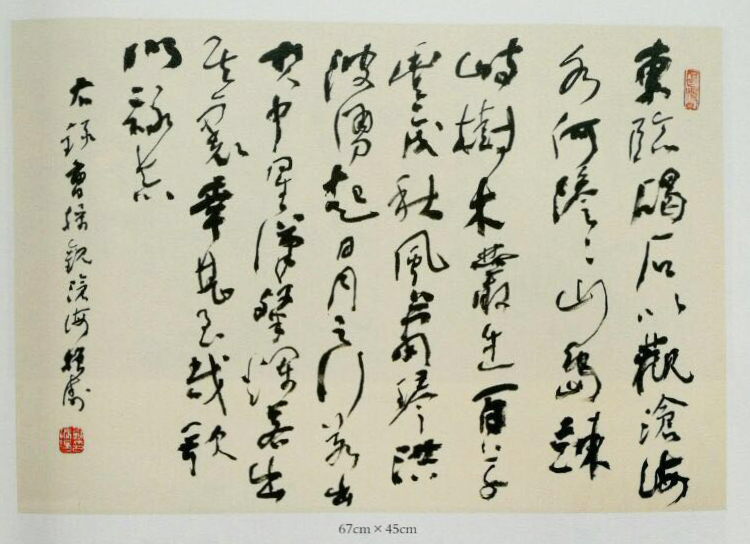 東臨碣石以觀滄海
水何澹〻山島竦
峙樹木叢生百草
豐茂秋風蕭瑟洪
波湧起日月之行若出
其中星漢燦爛若出
其裏幸甚至哉歌
以詠志
右錄曹操觀滄海
67cm×45cm